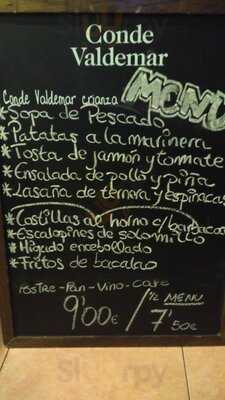 Conde
Valdemar
Conde Valdemar crianza
MENU
*Sopa de Pescado
*Patatas a la marinera
*Tosta de jamón y tomate
*Ensalada de pollo y piña
*Lasaña de ternera y espinacas
*Costillas al horno c/ barbacoa
*Escalopines de solomillo
*Hígado encebollado
*Fritos de bacalao
POSTRE-Pan-Vino-Café
9'00€ / ½ MENU
7'50€